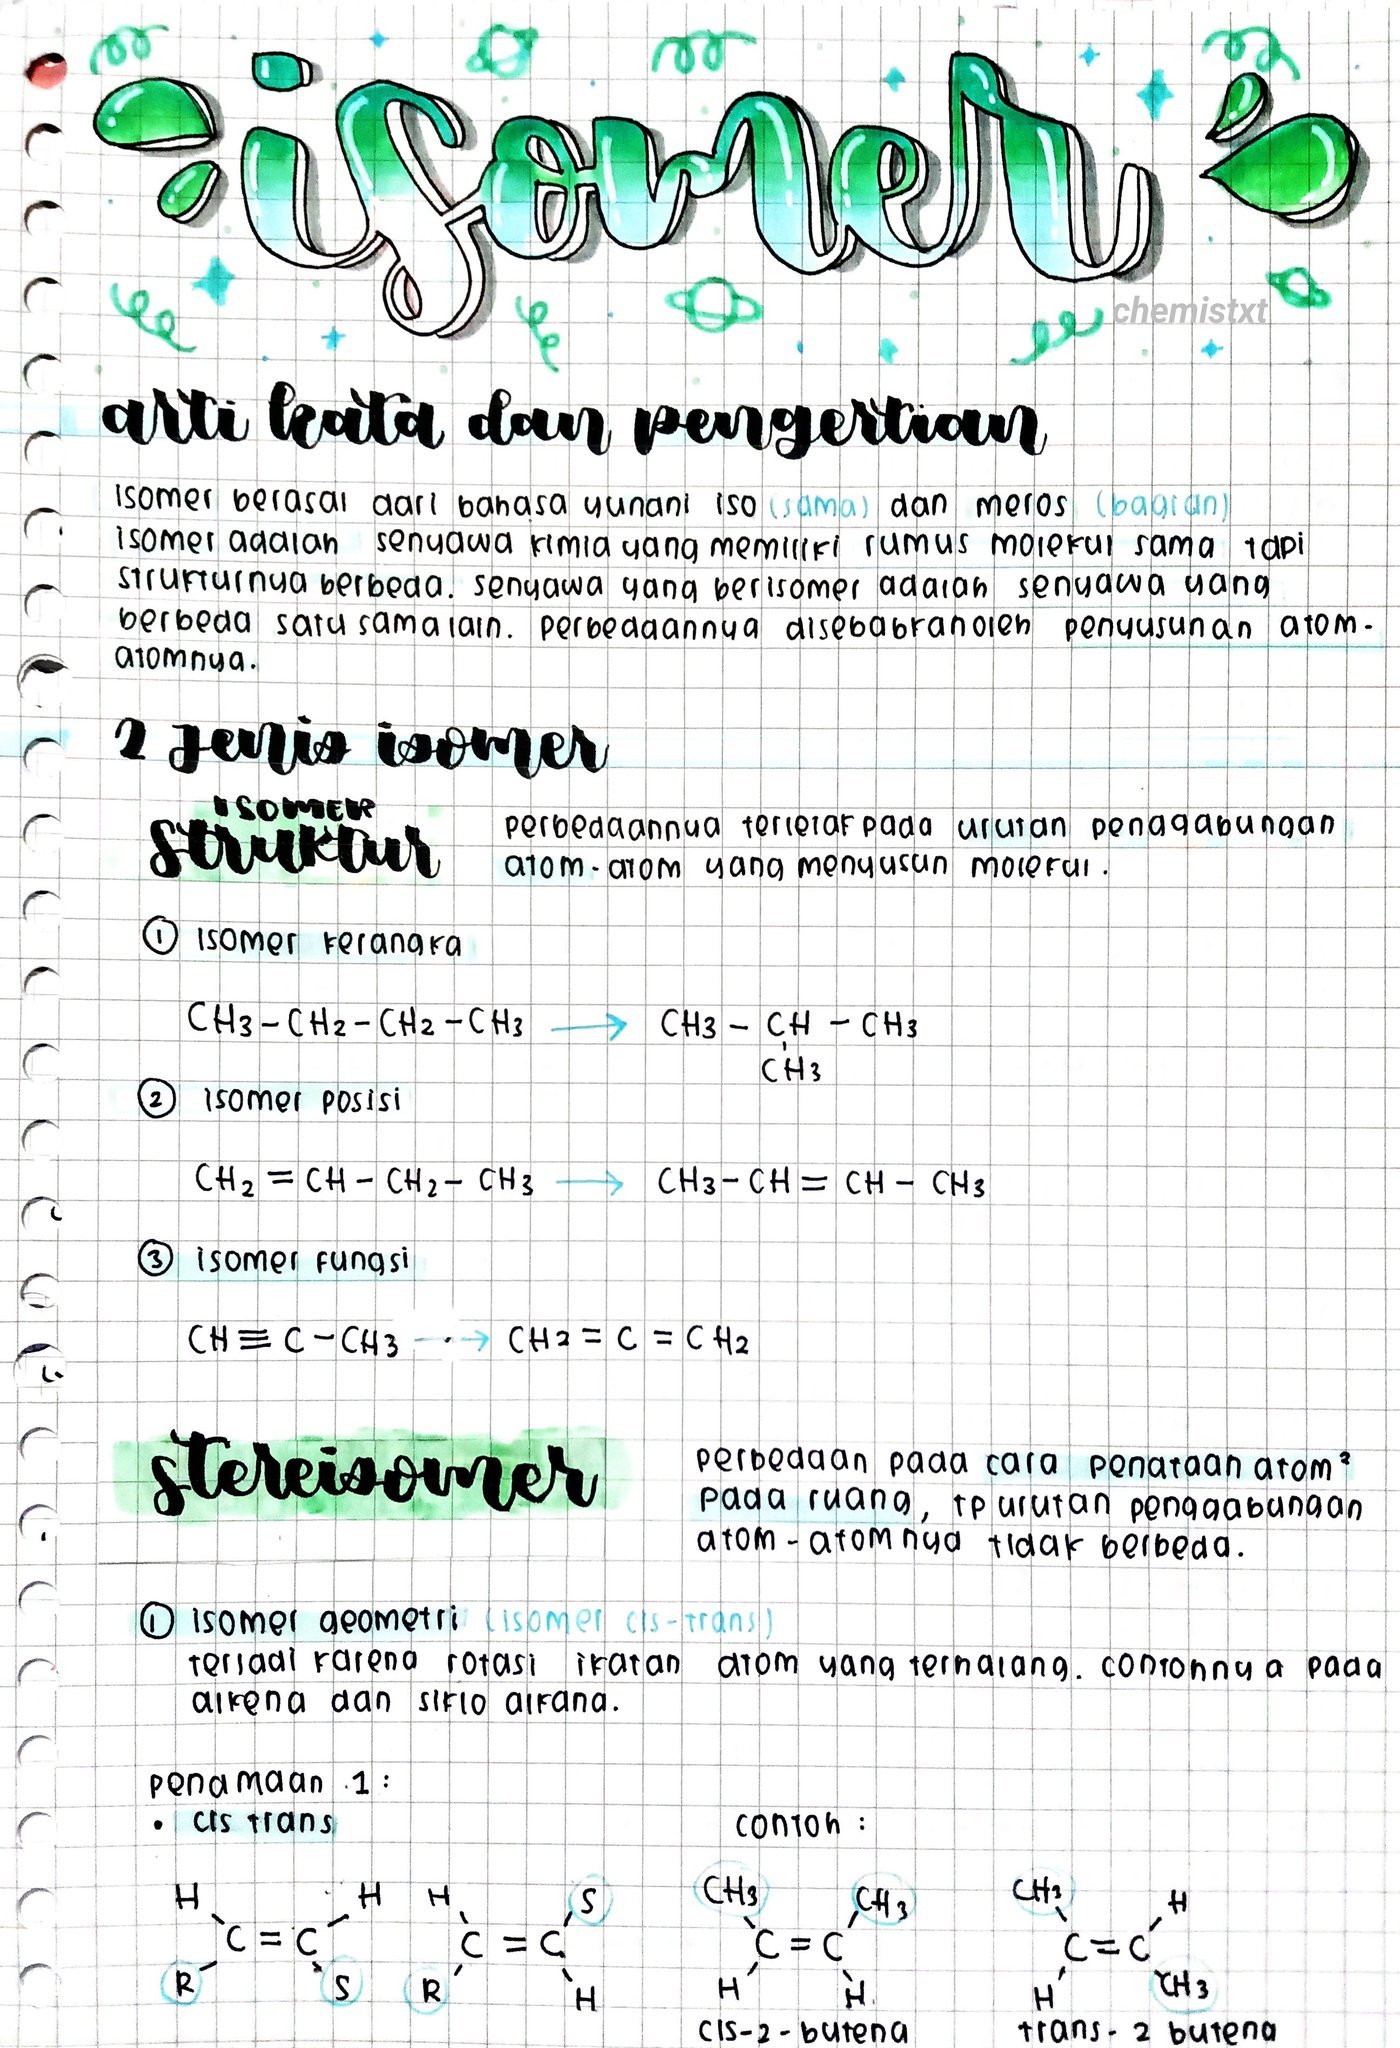 isomer
chemistxt
arti kata dan pengertian
isomer berasal dari bahasa yunani iso (sama) dan meros (bagian)
isomer adalah senyawa kimia yang memiliki rumus molekul sama tapi
strukturnya berbeda. senyawa yang berisomer adalah senyawa yang
berbeda satu sama lain. perbedaannya disebabkan oleh penyusunan atom-
atomnya.
2 Jenis isomer
ISOMER
struktur
perbedaannya terletak pada urutan penggabungan
atom-atom yang menyusun molekul.
① isomer kerangka
CH3-CH2-CH2-CH3 → CH3 - CH - CH3
CH3
② isomer posisi
CH2 = CH - CH2 - CH3 → CH3 - CH = CH - CH3
③ isomer fungsi
CH ≡ C - CH3 → CH2 = C = CH2
stereisomer
perbedaan pada cara penataan atom²
pada ruang, tp urutan penggabungan
atom-atomnya tidak berbeda.
① isomer geometri (isomer cis-trans)
terjadi karena rotasi ikatan atom yang terhalang. contohnya pada
alkena dan siklo alkana.
penamaan 1:
• cis trans
contoh :
H H H S CH3 CH3 CH3 H
C = C C = C C = C C = C
R S R H H H H CH3
cis-2-butena trans-2 butena